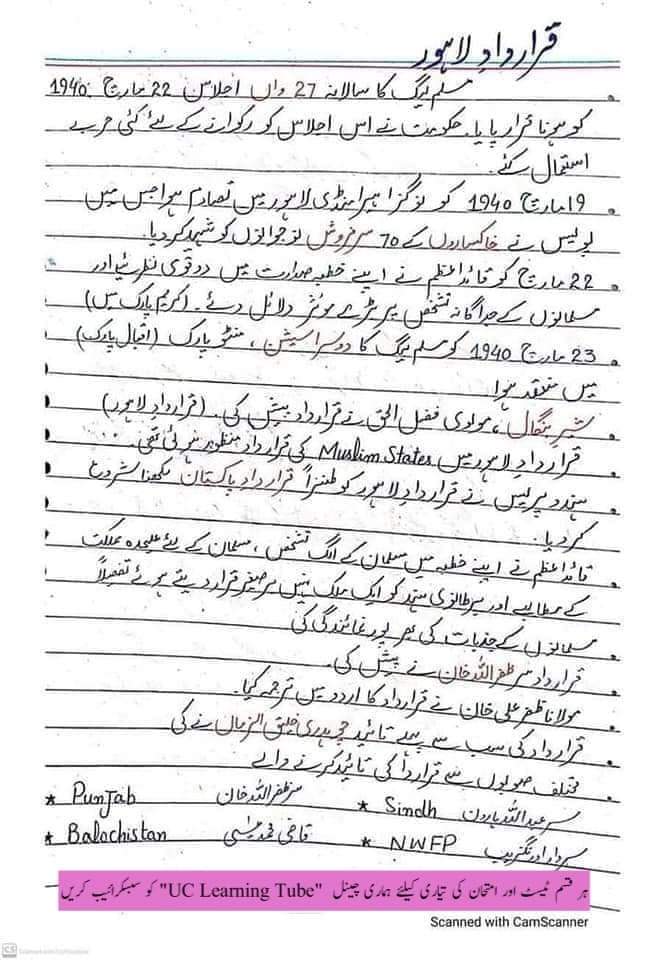 قرارداد لاہور
مسلم لیگ کا سالانہ 27 واں اجلاس 22 مارچ 1940
کو ہونا قرار پایا۔ حکومت نے اس اجلاس کو رکوانے کے لئے کئی حربے
استعمال کئے۔
19 مارچ 1940 کو نوگزا ہیرا منڈی لاہور میں تصادم ہوا جس میں
پولیس نے خاکساروں کے 70 سرفروش نوجوانوں کو شہید کر دیا۔
22 مارچ کو قائداعظم نے اپنے خطبہ صدارت میں دو قومی نظریہ اور
مسلمانوں کے جداگانہ تشخص پر بڑے موثر دلائل دئے۔ (کریم پارک میں)
23 مارچ 1940 کو مسلم لیگ کا دوسرا سیشن، منٹو پارک (اقبال پارک)
میں منعقد ہوا۔
شیرِ بنگال، مولوی فضل الحق نے قرارداد پیش کی۔ (قرارداد لاہور)
قراردادِ لاہور میں Muslim States کی قرارداد منظور ہوئی تھی
ہندو پریس نے قراردادِ لاہور کو طنزاً قرارداد پاکستان لکھنا شروع
کر دیا۔
قائداعظم نے اپنے خطبہ میں مسلمان کے الگ تشخص، مسلمان کے لئے علیحدہ مملکت
کے مطالبے اور برطانوی ہند کو ایک ملک نہیں برصغیر قرار دیتے ہوئے تفصیلاً
مسلمانوں کے جذبات کی بھرپور نمائندگی کی
قرارداد سر ظفراللہ خان نے پیش کی۔
مولانا ظفر علی خان نے قرارداد کا اردو میں ترجمہ کیا۔
قرارداد کی سب سے پہلے تائید چوہدری خلیق الزماں نے کی
مختلف صوبوں سے قرارداد کی تائید کرنے والے
سر عبداللہ ہارون Sindh * سر ظفراللہ خان Punjab *
سردار اورنگزیب NWFP * قاضی محمد عیسیٰ Balochistan *
ہر قسم ٹیسٹ اور امتحان کی تیاری کیلئے ہماری چینل "UC Learning Tube" کو سبسکرائیب کریں
Scanned with CamScanner
CS Scanned with CamScanner